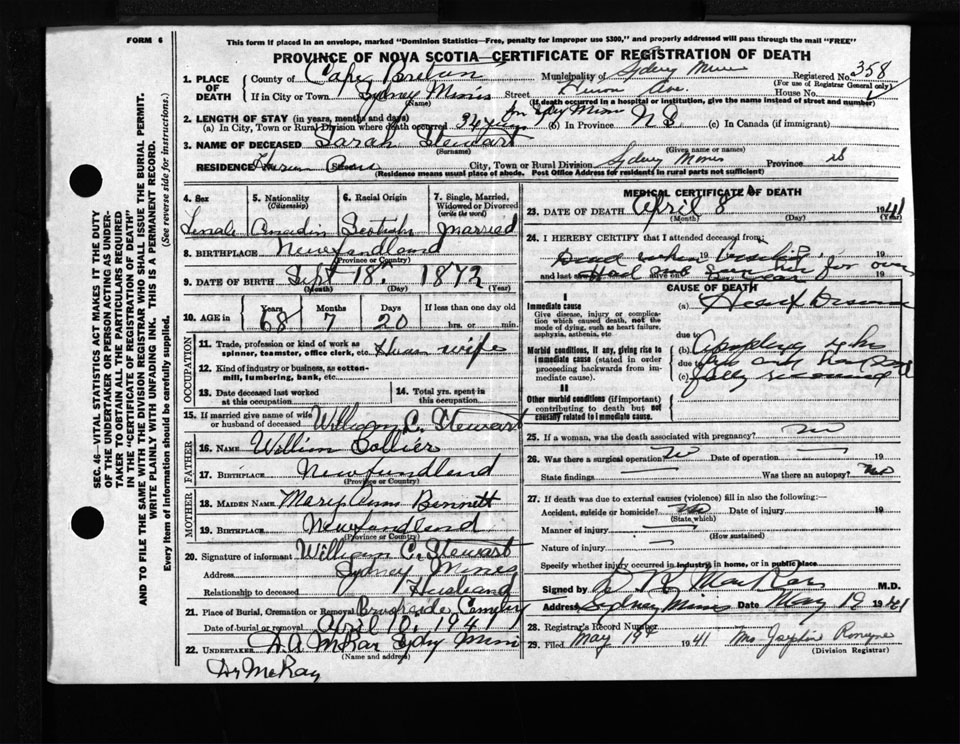 FORM 6
This form if placed in an envelope, marked "Dominion Statistics—Free, penalty for improper use $300," and properly addressed will pass through the mail "FREE"
PROVINCE OF NOVA SCOTIA—CERTIFICATE OF REGISTRATION OF DEATH
1. PLACE OF DEATH County of Cape Breton Municipality of Sydney Mines Registered No. 358
(For use of Registrar General only)
If in City or Town Sydney Mines Street Huron Ave. House No.
(Name) (If death occurred in a hospital or institution, give the name instead of street and number)
2. LENGTH OF STAY (in years, months and days)
(a) In City, Town or Rural Division where death occurred 34 years in Sydney Mines (b) In Province N S (c) In Canada (if immigrant)
3. NAME OF DECEASED Sarah Stewart
(Surname) (Given name or names)
RESIDENCE Huron City, Town or Rural Division Sydney Mines Province NS
(Residence means usual place of abode. Post Office Address for residents in rural parts not sufficient)
4. Sex 5. Nationality (Citizenship) 6. Racial Origin 7. Single, Married, Widowed or Divorced (write the word)
Female Canadian Scotish Married
8. BIRTHPLACE Newfandland
(Province or Country)
9. DATE OF BIRTH Sept 18 1872
(Month) (Day) (Year)
10. AGE in Years Months Days If less than one day old
68 7 20 hrs. or min.
OCCUPATION
11. Trade, profession or kind of work as spinner, teamster, office clerk, etc. House wife
12. Kind of industry or business, as cotton-mill, lumbering, bank, etc.
13. Date deceased last worked at this occupation 14. Total yrs. spent in this occupation
15. If married give name of wife or husband of deceased William C. Stewart
FATHER
16. NAME William Collier
17. BIRTHPLACE Newfundlend
(Province or Country)
MOTHER
18. MAIDEN NAME Mary Ann Bennett
19. BIRTHPLACE Newfandland
(Province or Country)
20. Signature of informant William C. Stewart
Address Sydney Mines
Relationship to deceased Husband
21. Place of Burial, Cremation or Removal Brookside Cemetery
Date of burial or removal April 10, 1941
22. UNDERTAKER A. A. McKay Sydney Mines
(Name and address)
Dr McKay
MEDICAL CERTIFICATE OF DEATH
23. DATE OF DEATH April 8 1941
(Month) (Day) (Year)
24. I HEREBY CERTIFY that I attended deceased from
Dead when 19 19
and last saw alive on 19
Had not seen her for over
CAUSE OF DEATH
I
Immediate cause
Give disease, injury or complication which caused death, not the mode of dying, such as heart failure, asphyxia, asthenia, etc
(a) Heart Disease
due to
Morbid conditions, if any, giving rise to immediate cause (stated in order proceeding backwards from immediate cause).
(b) Apoplexy
due to
(c) fully recovered
II
Other morbid conditions (if important) contributing to death but not causally related to immediate cause.
25. If a woman, was the death associated with pregnancy? no
26. Was there a surgical operation? no Date of operation 19
State findings Was there an autopsy? no
27. If death was due to external causes (violence) fill in also the following:—
Accident, suicide or homicide? no Date of injury 19
(State which)
Manner of injury
(How sustained)
Nature of injury
Specify whether injury occurred in industry in home, or in public place
Signed by D R MacRae M.D.
Address Sydney Mines Date May 19 1941
28. Registrar's Record Number
29. Filed May 19th 1941 Mrs Josephine
(Division Registrar)
SEC. 46—VITAL STATISTICS ACT MAKES IT THE DUTY
OF THE UNDERTAKER OR PERSON ACTING AS UNDER-
TAKER TO OBTAIN ALL THE PARTICULARS REQUIRED
IN THE "CERTIFICATE OF REGISTRATION OF DEATH"
AND TO FILE THE SAME WITH THE DIVISION REGISTRAR WHO SHALL ISSUE THE BURIAL PERMIT.
WRITE PLAINLY WITH UNFADING INK. THIS IS A PERMANENT RECORD.
Every item of information should be carefully supplied. (See reverse side for instructions.)